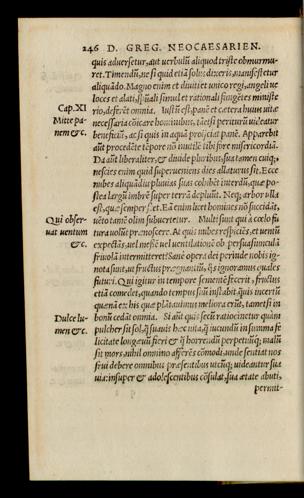 246 D. GREG. NEOCAESARIEN.
quis adversetur, aut verbulū aliquod triste obmurmu-
ret. Timendū, ne si quid etiā solus dixeris, manifestetur
aliquādo. Magno enim et divitī et unico regi, angeli ve
loces et alati, spūali simul et rationali fungētes ministe
rio, deferēt omnia. Iustū est, panē et cætera huius vitæ
Cap. XI
necessaria cōicare hominibus, tāetsi periturū videatur
Mitte pa-
beneficiū, ac si quis in aquā proijciat panē. Apparebit
nem &c.
aūt procedēte tēpore nō inutilē tibi fore misericordiā.
Da aūt liberaliter, & divide pluribus, sua tamen cuiq;
nescies enim quid superveniens dies allaturus sit. Ecce
nubes aliquādiu pluvias suas cohibēt interdū, quæ po-
stea largū imbrē super terrā depluūt. Neq; arbor ulla
est, quæ semper stet. Eā enim licet homines nō succidāt,
vēto tamē olim subvertetur. Multi sunt qui à cœlo fu
Qui obser-
tura volūt prænoscere. At quis nubes respiciēs, et ventū
vat ventum
expectās, vel messē vel ventilationē ob persuasiuncula
&c.
frivola intermitteret? Sane opera dei perinde nobis ig-
nota sunt, ut fructus prægnantiū, q̄ ignoramus quales
futuri. Qui igitur in tempore sementē fecerit, fructus
etiā comedet, quando tempus suū instabit, quis incertū
quænā ex his quæ plātavimus meliora erūt, tametsi in
bonū cedāt omnia. Si aūt quis secū ratiocinetur quàm
Dulce lu-
pulcher sit sol, q̄ suavis hæc vita, q̄ iucundū in summa fe
men &c.
licitate longævū fieri & q̄ horrendū perpetuūq; malū
sit mors, nihil omnino afferēs cōmodi, unde sentiat nos
frui debere omnibus præsentibus utcūq; videantur sua
via: insuper & adolescentibus cōsulat, sua ætate abuti,
permit-